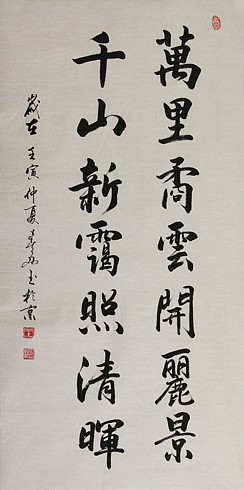 萬里矞雲開麗景
千山新靄照清暉
歲在壬寅仲夏書於京